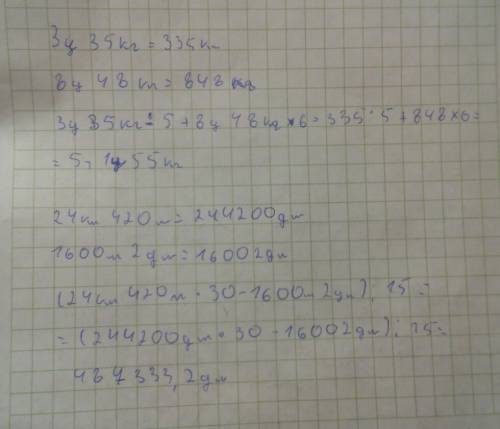 3ц 35кг = 335кг
8ц 48 кг = 848 кг
3ц 35кг : 5 + 8ц 48 кг × 6 = 335 : 5 + 848 × 6 =
= 5т 1ц 55 кг
24км 420м = 244200дм
1600м 2дм = 16002дм
(24км 420м · 30 - 1600м 2дм) : 15 =
= (244200дм · 30 - 16002дм) : 15 =
487333,2дм